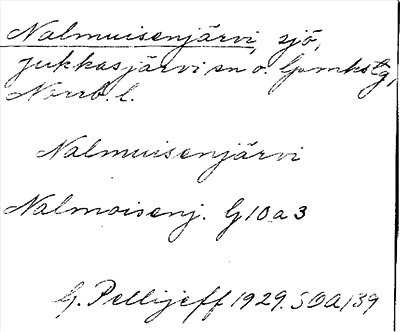 Nalmuisenjärvi, sjö,
Jukkasjärvi sn o. lpmkstg,
Norrb. l.
Nalmuisenjärvi
Nalmoisenj. G10a3
G. Pellijeff 1929. SOA 139